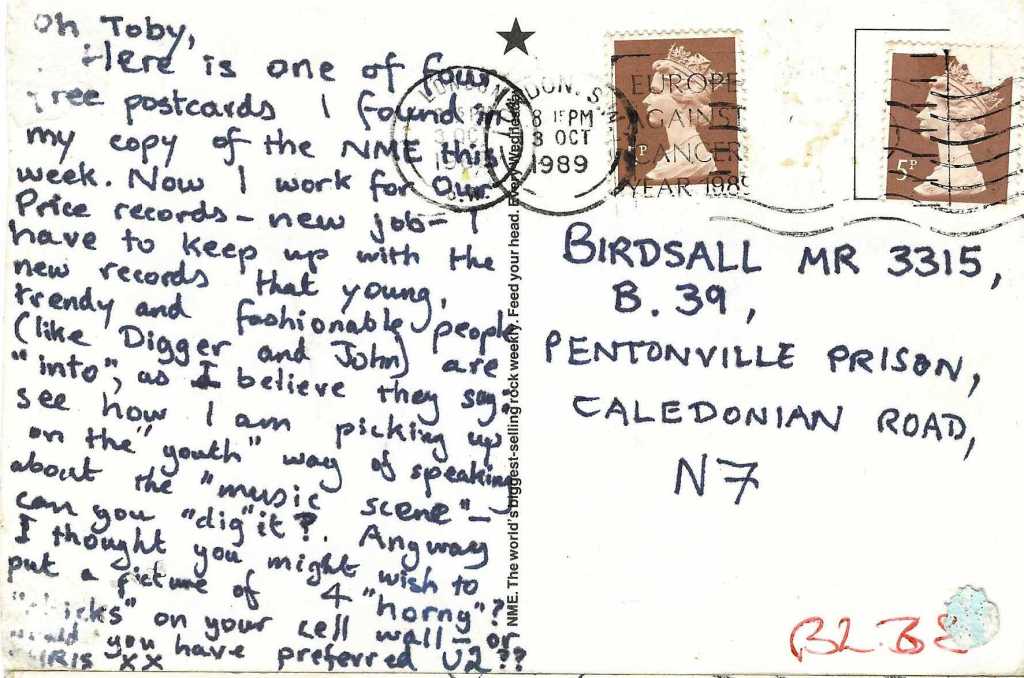 Oh Toby,
Here is one of four
free postcards I found in
my copy of the NME this
week. Now I work for Our
Price records - new job - I
have to keep up with the
new records that young,
trendy and fashionable people
(like Digger and John) are
"into", as I believe they say:
see how I am picking up
on the "youth" way of speaking
about the "music scene" -
can you "dig" it?. Anyway
I thought you might wish to
put a picture of 4 "horny"?
"chicks" on your cell wall - or
would you have preferred U2??
CHRIS XX
NME. The world's biggest-selling rock weekly. Feed your head. Every Wednesday.
LONDON
3 OCT
S.W.
LONDON. S.W.
8 15 PM
3 OCT
1989
EUROPE
AGAINST
CANCER
YEAR 1989
5P
BIRDSALL MR 3315,
B. 39,
PENTONVILLE PRISON,
CALEDONIAN ROAD,
N7